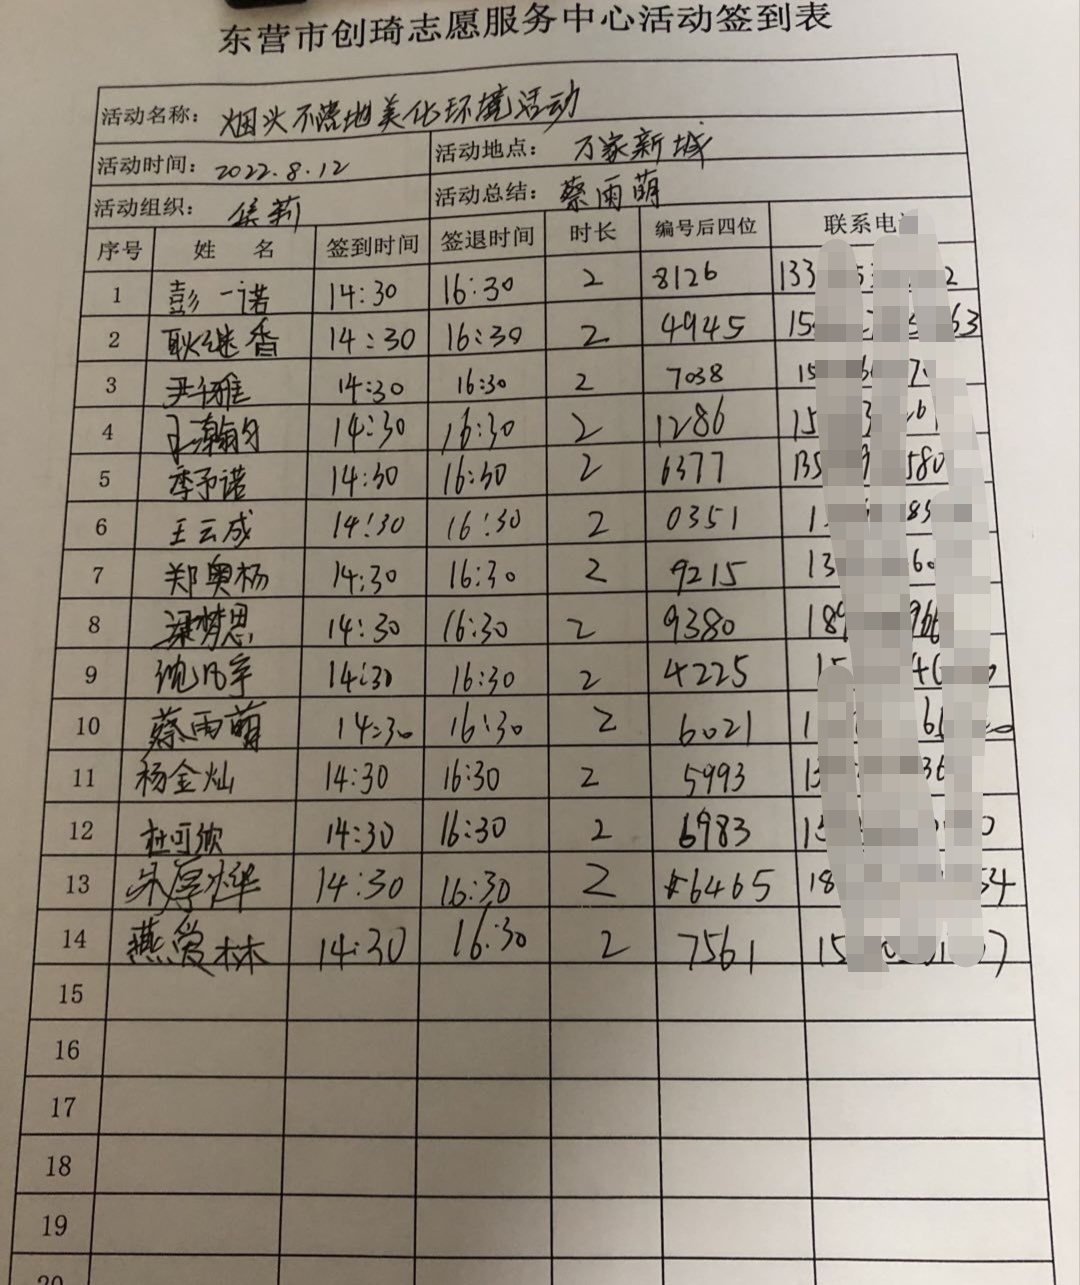 东营市创琦志愿服务中心活动签到表
活动名称： 烟头不落地美化环境活动
活动时间： 2022.8.12 活动地点： 万家新城
活动组织： 侯莉 活动总结： 蔡雨萌
序号 姓 名 签到时间 签退时间 时长 编号后四位 联系电
1 彭一诺 14:30 16:30 2 8126 133
2 耿继香 14:30 16:30 2 4945 15 63
3 尹 雅 14:30 16:30 2 7038 15
4 王瀚 14:30 16:30 2 1286 15
5 季予诺 14:30 16:30 2 6377 135 580
6 王云成 14:30 16:30 2 0351 1
7 郑奥杨 14:30 16:30 2 9215 13
8 梁梦思 14:30 16:30 2 9380 18 966
9 14:30 16:30 2 4225 15
10 蔡雨萌 14:30 16:30 2 6021 1
11 杨金灿 14:30 16:30 2 5993 13
12 杜可欣 14:30 16:30 2 6983 15
13 厚烨 14:30 16:30 2 6465 18 54
14 燕爱林 14:30 16:30 2 7561 15 7
15
16
17
18
19
20